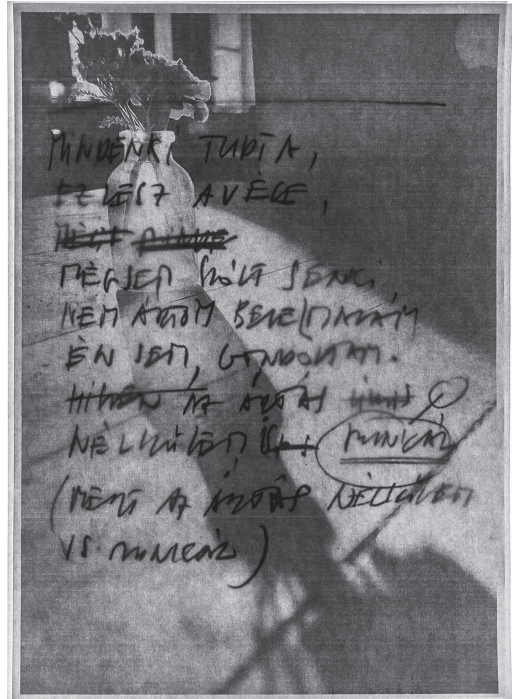 MINDENKI TUDTA,
EZ LESZ A VÉGE,
MÉGSEM SZÓLT SENKI,
NEM ÁRTOM BELE MAGAM
ÉN SEM, GONDOLTAM.
HISZEN AZ ÁRTÁS
NÉLKÜLEM MUNKÁL
(MERT AZ ÁRTÁS NÉLKÜLEM
IS MUNKÁL)